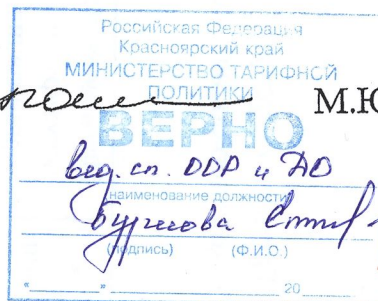 Российская Федерация
Красноярский край
МИНИСТЕРСТВО ТАРИФНОЙ
ПОЛИТИКИ
М.Ю
ВЕРНО
вед. сп. ООР и ДО
(наименование должности)
(подпись) (Ф.И.О.)
« » 20